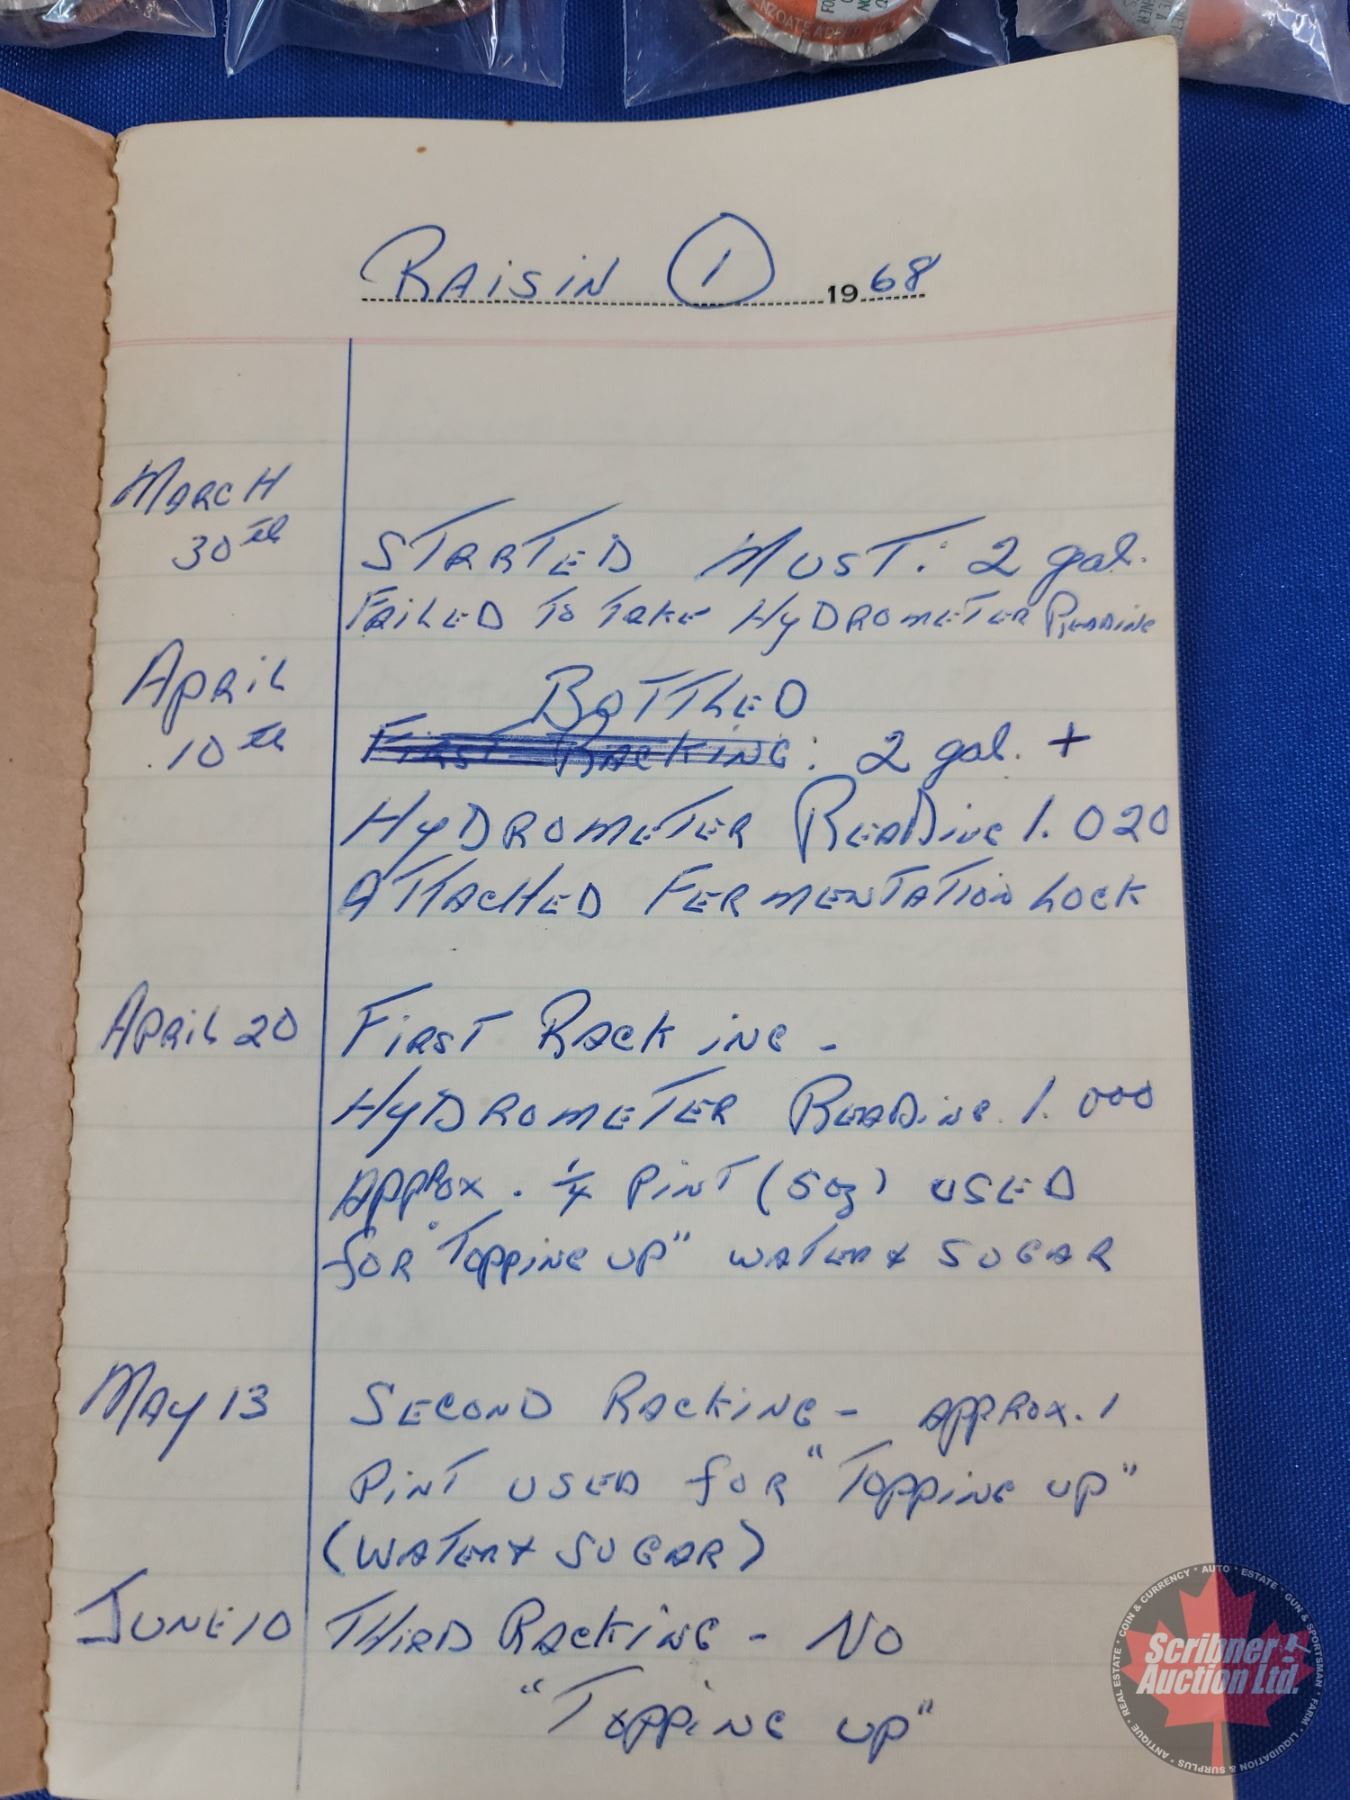 RAISIN 1 1968
MARCH
30th
STARTED MUST: 2 gal.
FAILED TO TAKE HYDROMETER READING
APRIL
10th
BOTTLED
FIRST RACKING: 2 gal. +
HYDROMETER READING 1.020
ATTACHED FERMENTATION LOCK
APRIL 20 FIRST RACKING -
HYDROMETER READING 1.000
APPROX. 1/4 PINT (5oz) USED
FOR "TOPPING UP" WATER & SUGAR
MAY 13 SECOND RACKING - APPROX. 1
PINT USED FOR "TOPPING UP"
(WATER & SUGAR)
JUNE 10 THIRD RACKING - NO
"TOPPING UP"
Scribner
Auction Ltd.
ANTIQUE • REAL ESTATE • COIN & CURRENCY • AUTO • ESTATE • GUN & SPORTSMAN • FARM • LIQUIDATION & SURPLUS •